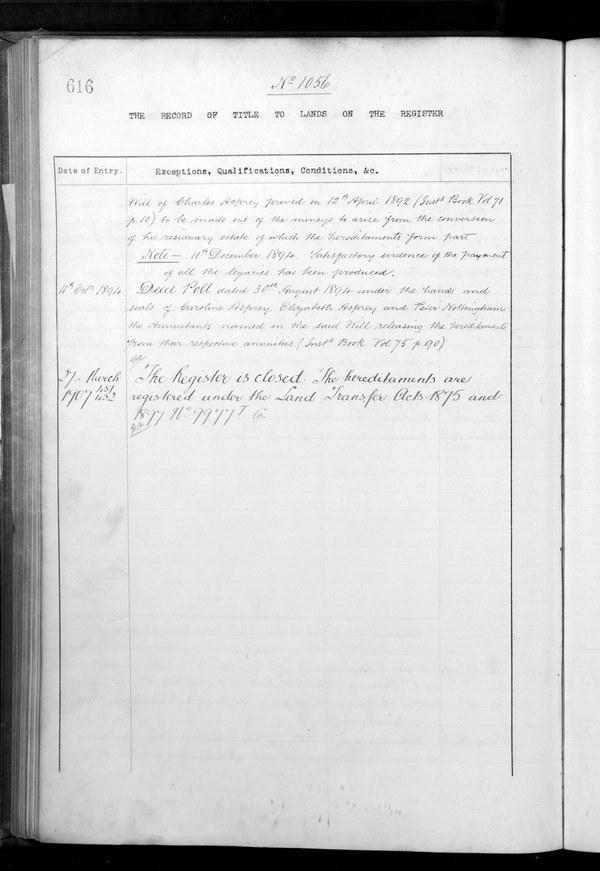 616
No 1056
THE RECORD OF TITLE TO LANDS ON THE REGISTER
Date of Entry.
Exceptions, Qualifications, Conditions, &c.
Will of Charles Asprey proved on 12th April 1892 (Instt Book Vol 71
p.10) to be made out of the moneys to arise from the conversion
of his residuary estate of which the hereditaments form part
Note — 11th December 1894. Satisfactory evidence of the payment
of all the legacies has been produced.
11th Octr 1894
Deed Poll dated 30th August 1894 under the hands and
seals of Caroline Asprey, Elizabeth Asprey and Peter Nottingham
the Annuitants named in the said Will releasing the hereditaments
from their respective annuities (Instt Book Vol 75 p 90)
27. March
1907
The Register is closed. The hereditaments are
registered under the Land Transfer Acts 1875 and
1897 No 9977